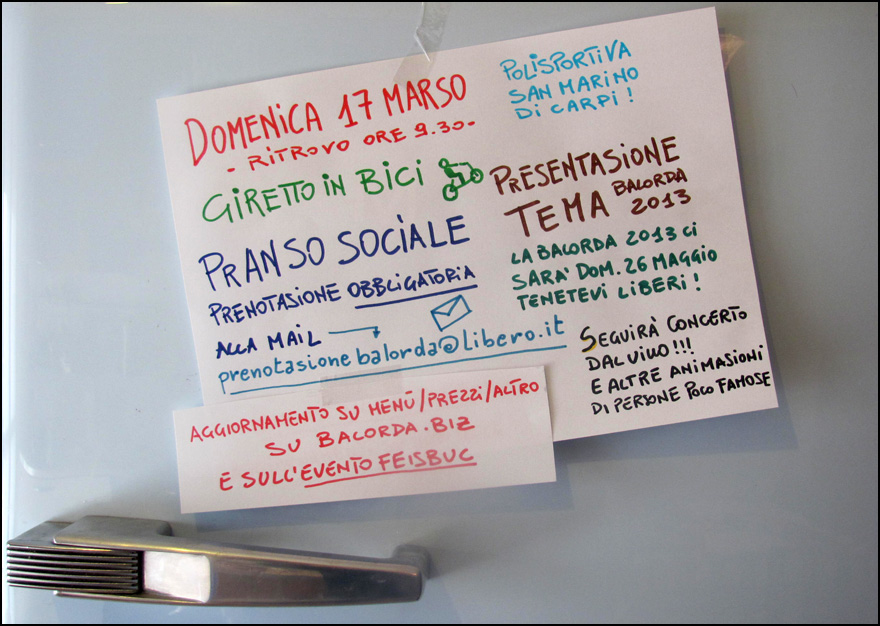 DOMENICA 17 MARSO
- RITROVO ORE 9.30-
GIRETTO IN BICI
PRANSO SOCIALE
PRENOTASIONE OBBLIGATORIA
ALLA MAIL
prenotasionebalorda@libero.it
POLISPORTIVA
SAN MARINO
DI CARPI!
PRESENTASIONE
TEMA BALORDA
2013
LA BALORDA 2013 CI
SARA' DOM. 26 MAGGIO
TENETEVI LIBERI!
SEGUIRÀ CONCERTO
DAL VIVO!!!
E ALTRE ANIMASIONI
DI PERSONE POCO FAMOSE
AGGIORNAMENTO SU MENÙ/PREZZI/ALTRO
SU BALORDA.BIZ
E SULL'EVENTO FEISBUC